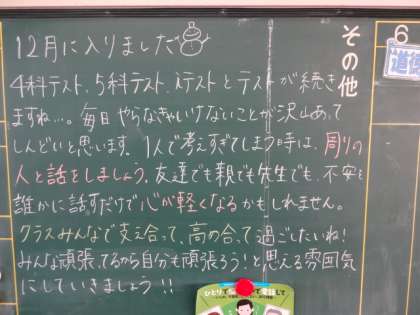 12月に入りました
4科テスト、5科テスト、実テストとテストが続き
ますね…。毎日やらなきゃいけないことが沢山あって
しんどいと思います。1人で考えすぎてしまう時は、周りの
人と話をしましょう。友達でも親でも先生でも、不安を
誰かに話すだけで心が軽くなるかもしれません。
クラスみんなで支え合って、高め合って過ごしたいね!
みんな頑張ってるから自分も頑張ろう!と思える雰囲気
にしていきましょう!!
その他
6
道徳
ひとりで